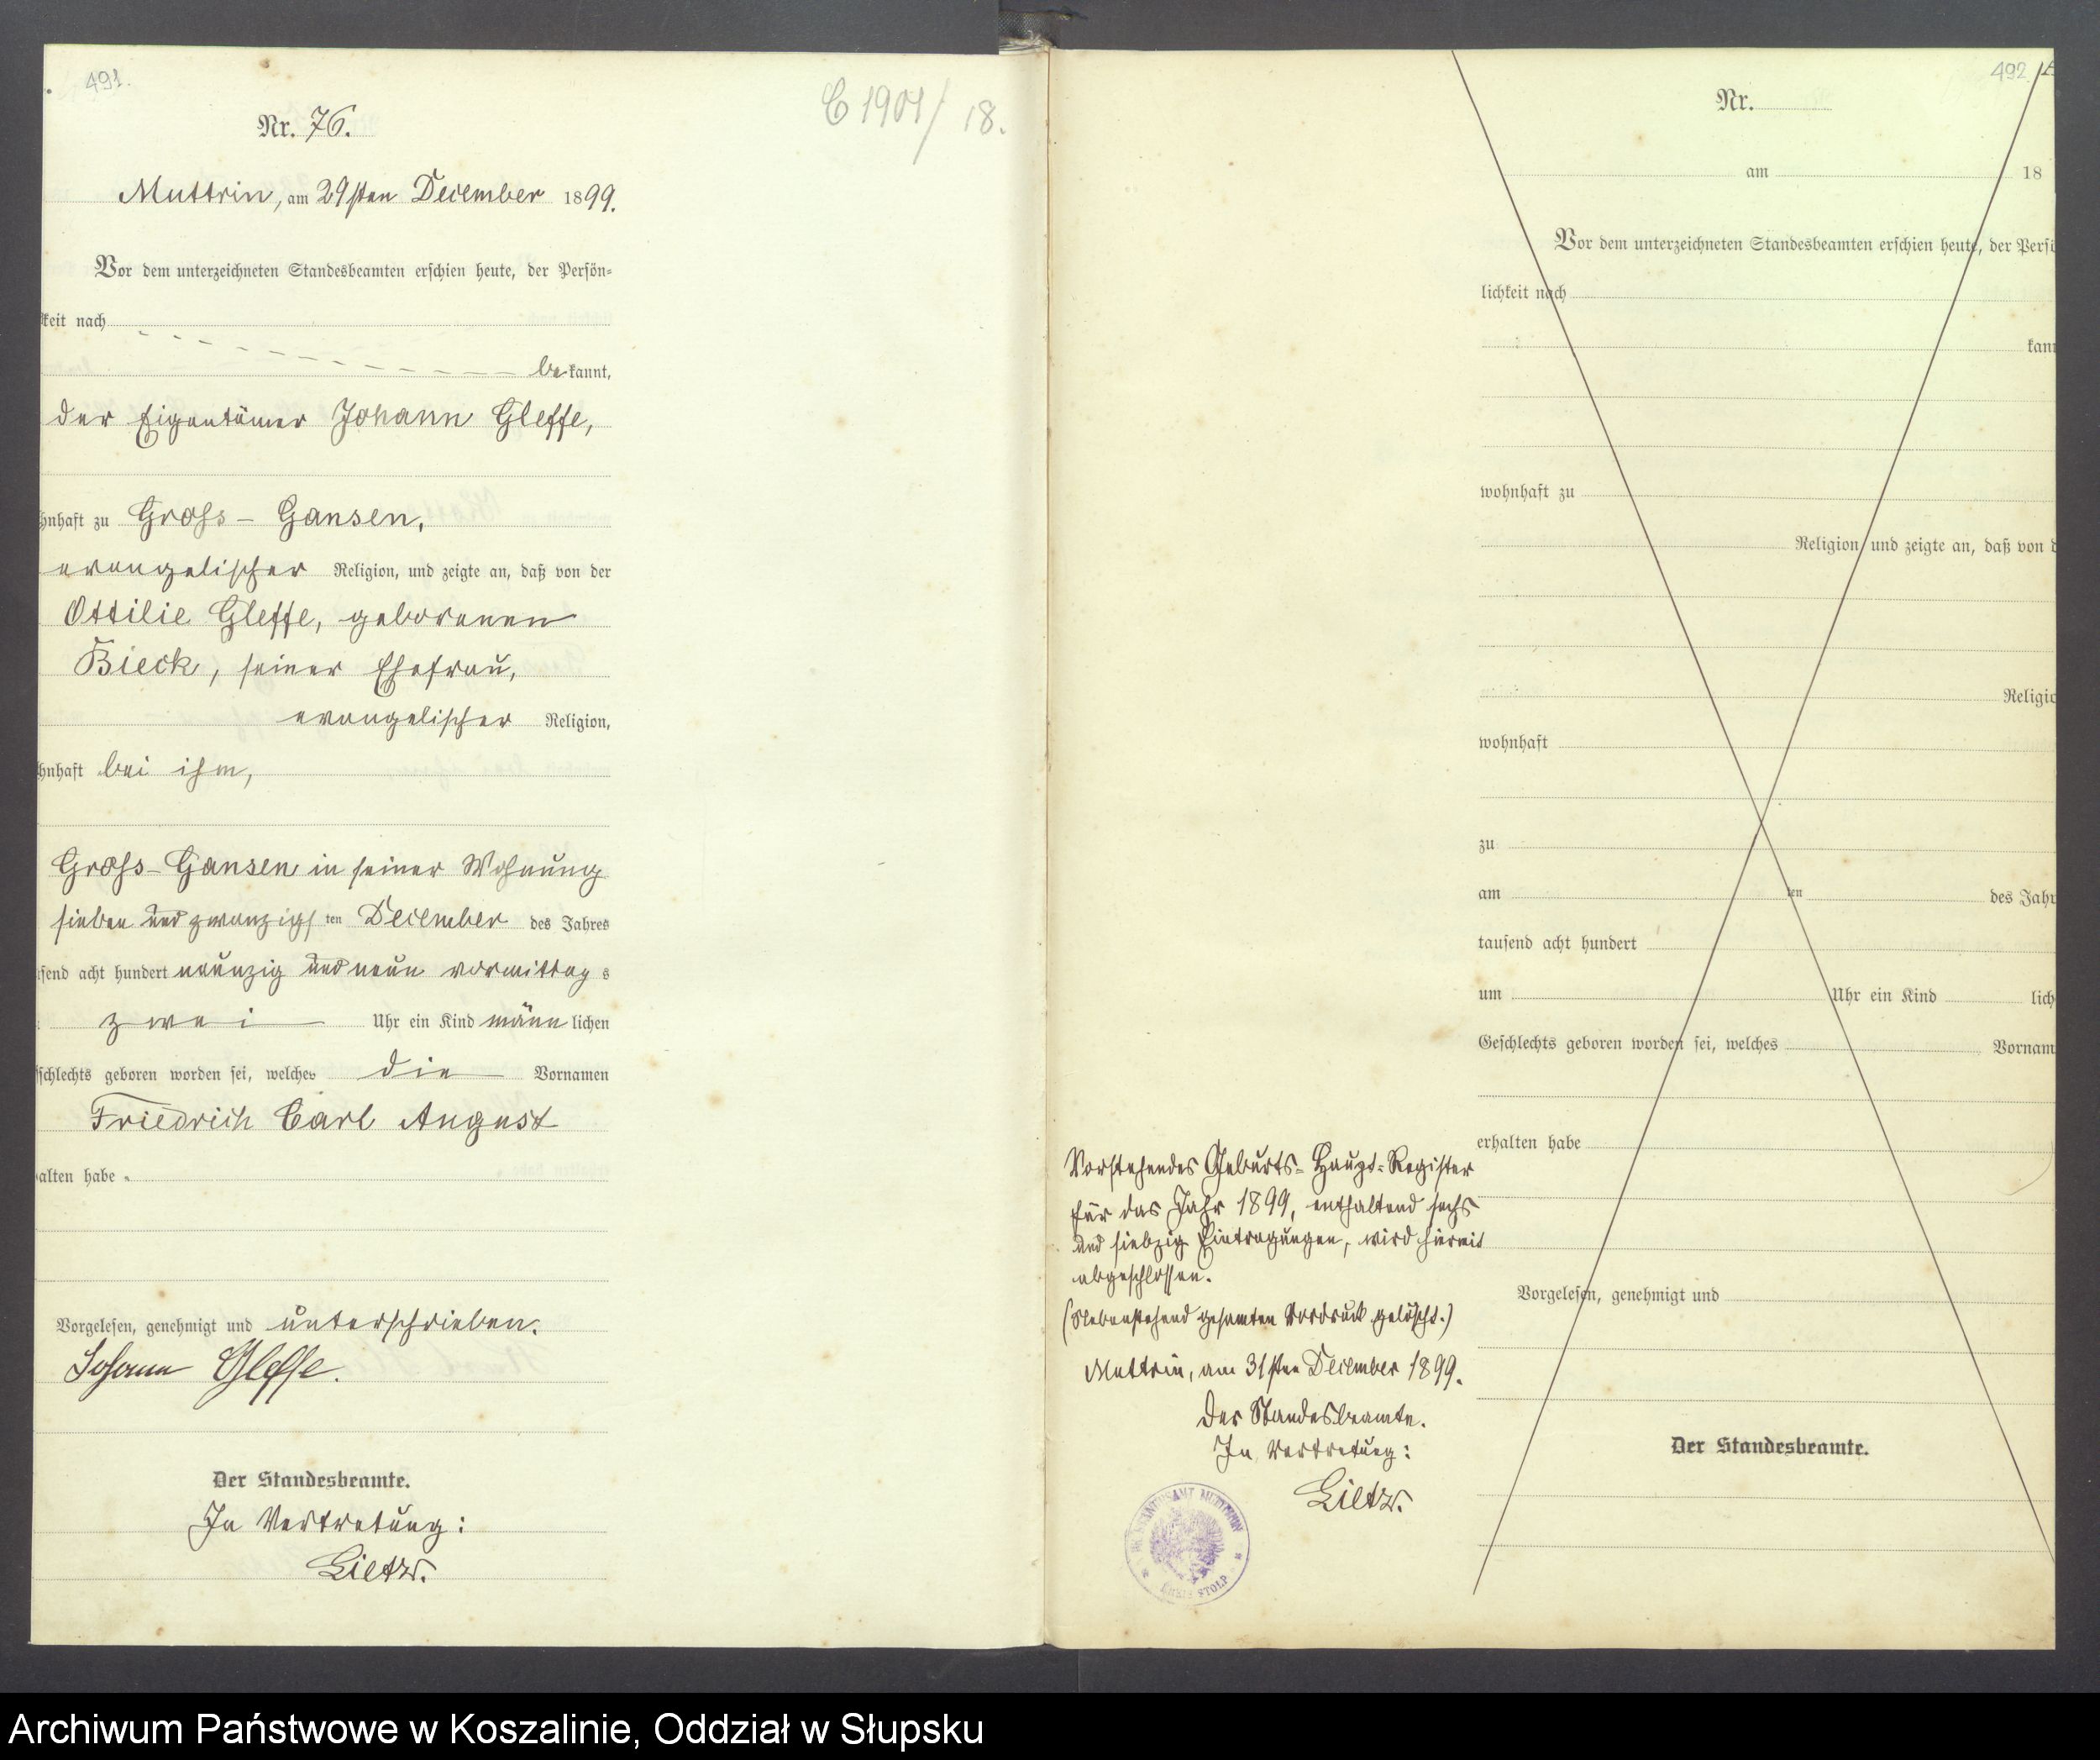 491.
C 1901/18.
Nr. 76.
Muttrin, am 29sten December 1899.
Vor dem unterzeichneten Standesbeamten erschien heute, der Persön-
keit nach
bekannt,
der Eigentümer Johann Gleffe,
hnhaft zu Gross-Gansen,
evangelischer Religion, und zeigte an, daß von der
Ottilie Gleffe, geborenen
Bieck, seiner Ehefrau,
evangelischer Religion,
hnhaft bei ihm,
Gross-Gansen in seiner Wohnung
sieben und zwanzigsten December des Jahres
send acht hundert neunzig und neun vormittags
zwei Uhr ein Kind männlichen
schlechts geboren worden sei, welches die Vornamen
Friedrich Carl August
alten habe.
Vorgelesen, genehmigt und unterschrieben.
Johann Gleffe.
Der Standesbeamte.
In Vertretung:
Lietz.
Vorstehendes Geburts-Haupt-Register
für das Jahr 1899, enthaltend sechs
und siebzig Eintragungen, wird hiermit
abgeschlossen.
(Nebenstehend gesamten Vordruck gelöscht.)
Muttrin, am 31sten December 1899.
Der Standesbeamte.
In Vertretung:
Lietz.
STANDESAMT MUTTRIN
KREIS STOLP
492
Nr.
am 18
Vor dem unterzeichneten Standesbeamten erschien heute, der Persö
lichkeit nach
kann
wohnhaft zu
Religion und zeigte an, daß von d
Religio
wohnhaft
zu
am ten des Jahr
tausend acht hundert
um Uhr ein Kind lich
Geschlechts geboren worden sei, welches Vornam
erhalten habe
Vorgelesen, genehmigt und
Der Standesbeamte.
Archiwum Państwowe w Koszalinie, Oddział w Słupsku